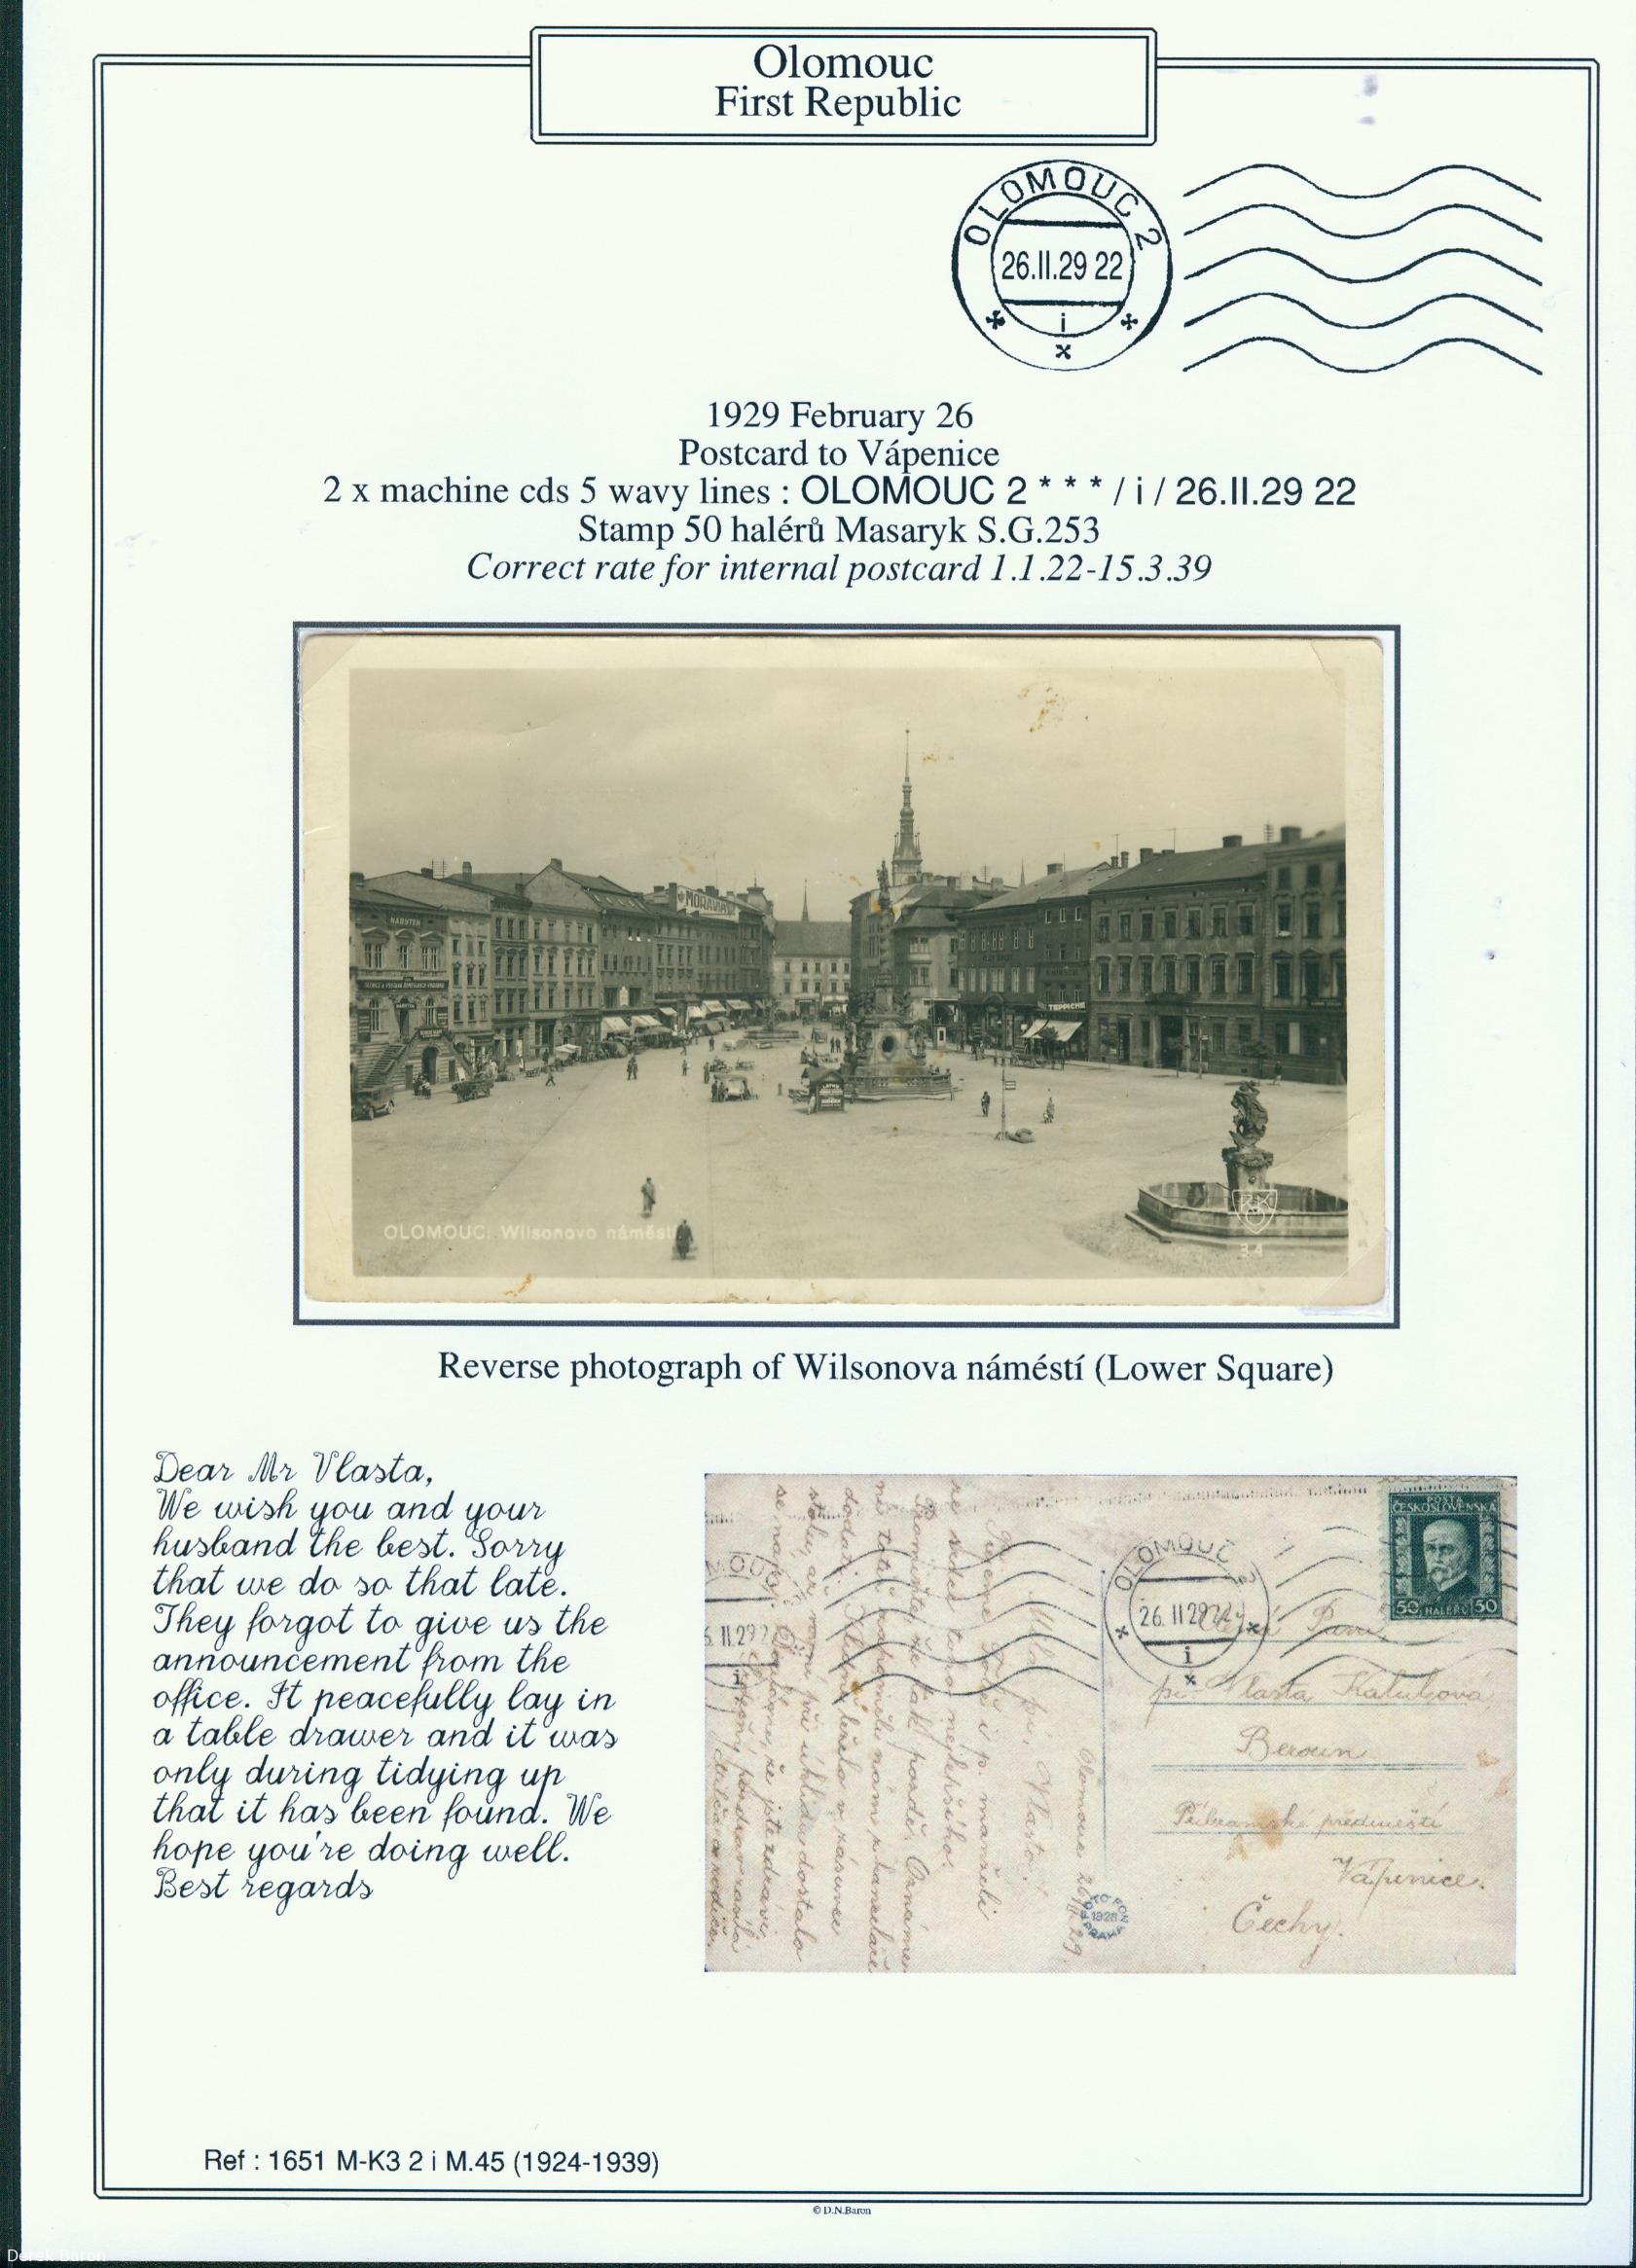 Olomouc
First Republic
OLOMOUC 2
26.II.29 22
i
1929 February 26
Postcard to Vápenice
2 x machine cds 5 wavy lines : OLOMOUC 2 * * * / i / 26.II.29 22
Stamp 50 halérů Masaryk S.G.253
Correct rate for internal postcard 1.1.22-15.3.39
MORAVIA
TEPPICHE
OLOMOUC: Wilsonovo náměstí
34
Reverse photograph of Wilsonova náméstí (Lower Square)
Dear Mr Vlasta,
We wish you and your
husband the best. Sorry
that we do so that late.
They forgot to give us the
announcement from the
office. It peacefully lay in
a table drawer and it was
only during tidying up
that it has been found. We
hope you're doing well.
Best regards
POŠTA
ČESKOSLOVENSKÁ
50 HALÉŘŮ 50
OLOMOUC 2
26.II.29 22
i
Vlasta
Beroun
Příbramské předměstí
Vápenice.
Čechy.
Olomouc 26/II.29
1928
PRAHA
Milá pí. Vlasto!
Přejeme Vám i p. manželi
ze srdce toho nejlepšího.
Ref : 1651 M-K3 2 i M.45 (1924-1939)
© D.N.Baron
Derek Baron